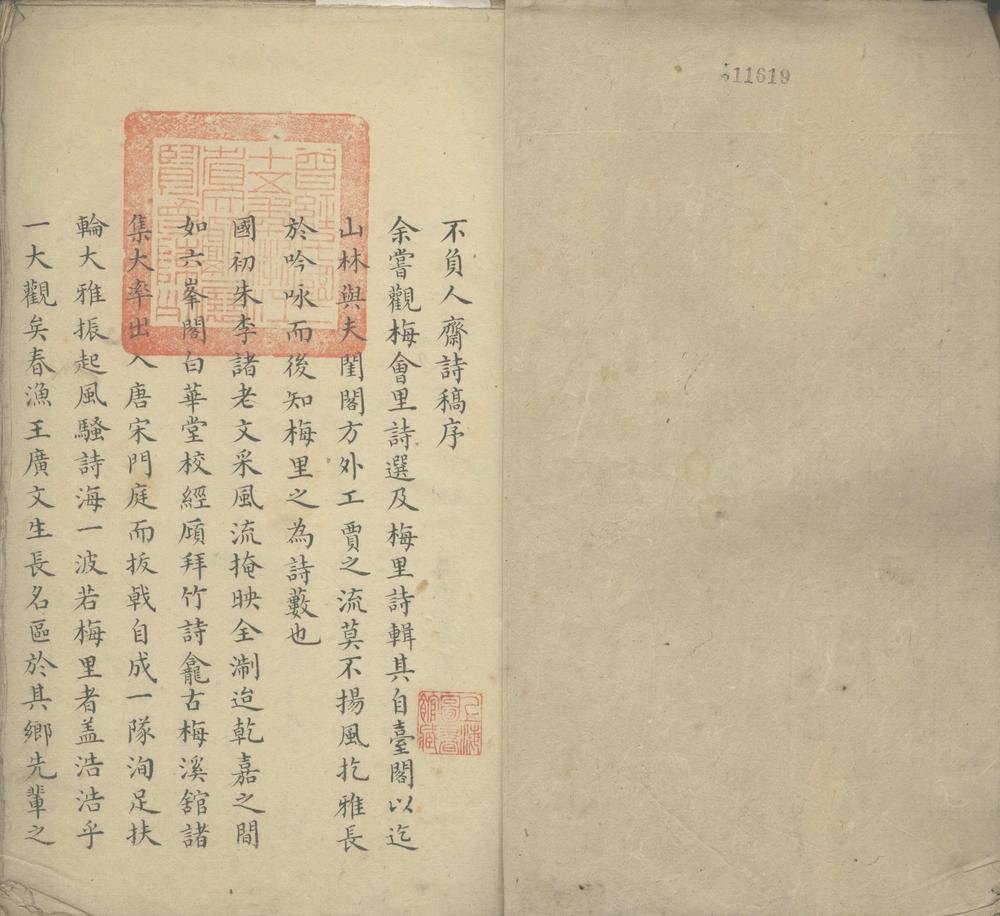 不負人齋詩稿序
余嘗觀梅會里詩選及梅里詩輯其自臺閣以迄
山林與夫閨閣方外工賈之流莫不揚風扢雅長
於吟咏而後知梅里之為詩藪也
國初朱李諸老文采風流掩映全淛迨乾嘉之間
如六峯閣白華堂校經廎拜竹詩龕古梅溪舘諸
集大率出入唐宋門庭而拔戟自成一隊洵足扶
輪大雅振起風騷詩海一波若梅里者盖浩浩乎
一大觀矣春漁王廣文生長名區於其鄉先輩之
上海圖書館藏
11619